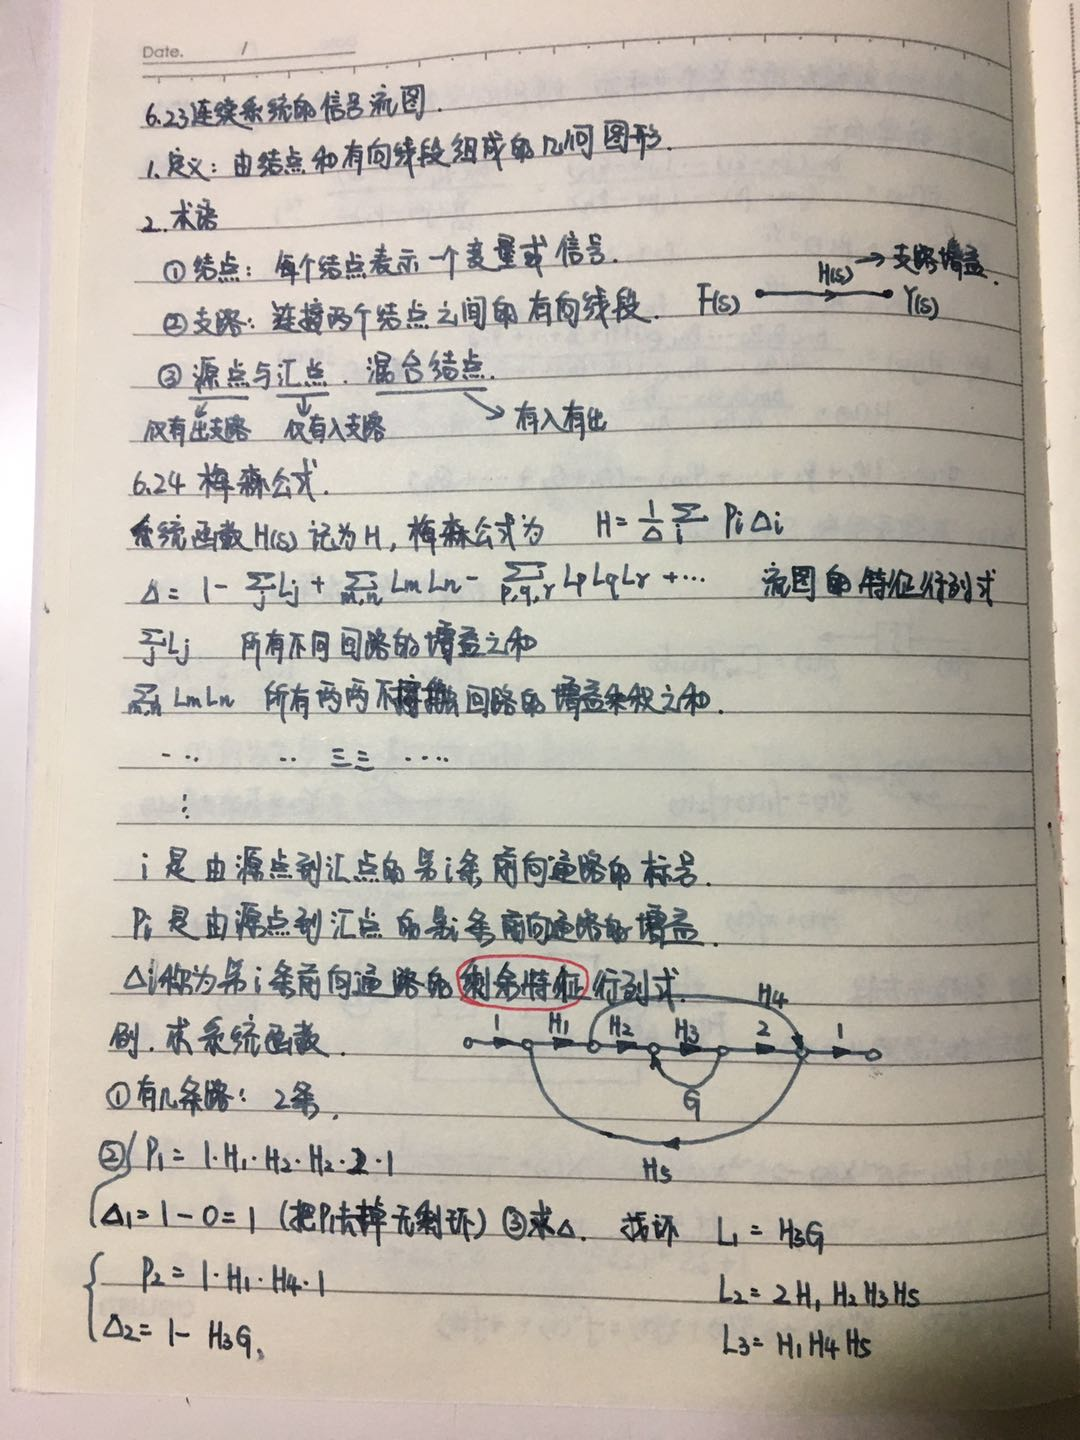 Date. /
6.23连续系统的信号流图.
1.定义: 由结点和有向线段组成的几何图形.
2.术语
①结点: 每个结点表示一个变量或信号.
H(s) →支路增益.
②支路: 连接两个结点之间的有向线段. F(s) Y(s)
③源点与汇点. 混合结点.
仅有出支路 仅有入支路 有入有出
6.24 梅森公式.
系统函数H(s)记为H, 梅森公式为 H=1/Δ ∑i PiΔi
Δ= 1-∑j Lj+∑m,n LmLn-∑p,q,r LpLqLr+… 流图的特征行列式
∑j Lj 所有不同回路的增益之和
∑m,n LmLn 所有两两不接触回路的增益乘积之和.
... .. 三三 ....
⋮
i是由源点到汇点的第i条前向通路的标号.
Pi是由源点到汇点的第i条前向通路的增益.
Δi称为第i条前向通路的剩余特征行列式.
H4
例.求系统函数. 1 H1 H2 H3 2 1
①有几条路: 2条. G
②P1=1·H1·H2·H2·2·1 H5
Δ1=1-0=1 (把P1去掉无剩环) ③求Δ. 找环 L1=H3G
P2=1·H1·H4·1 L2=2H1H2H3H5
Δ2=1-H3G. L3=H1H4H5